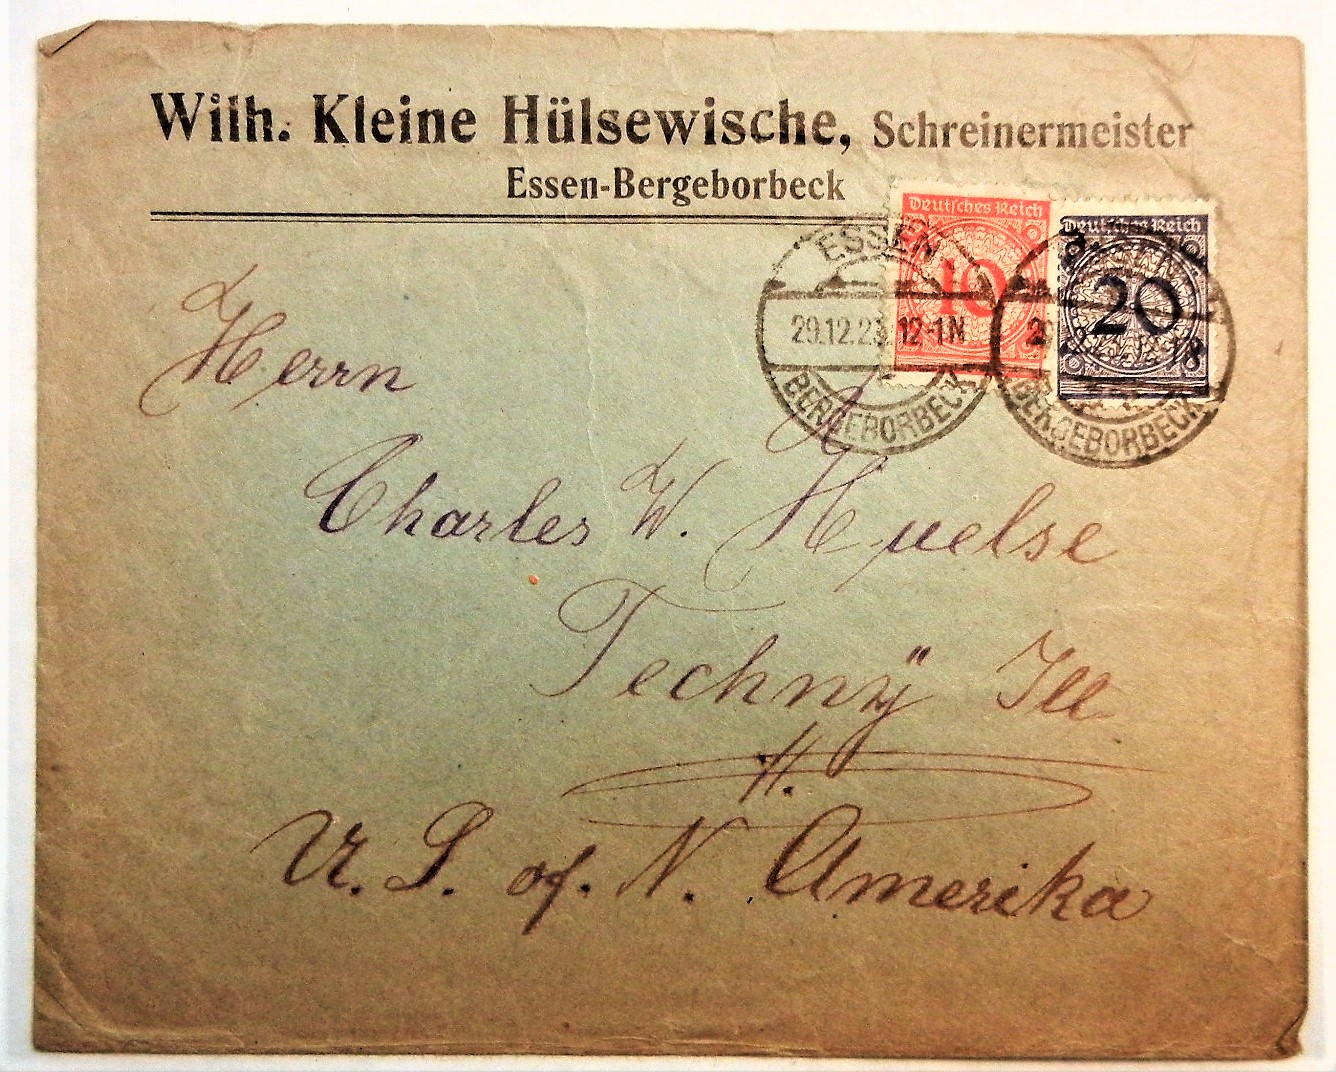 Wilh. Kleine Hülsewische, Schreinermeister
Essen-Bergeborbeck
Deutsches Reich
10
Deutsches Reich
20
ESSEN
29.12.23. 12-1N
BERGEBORBECK
BERGEBORBECK
Herrn
Charles W. Huelse
Technÿ Ill
U. S. of. N. Amerika